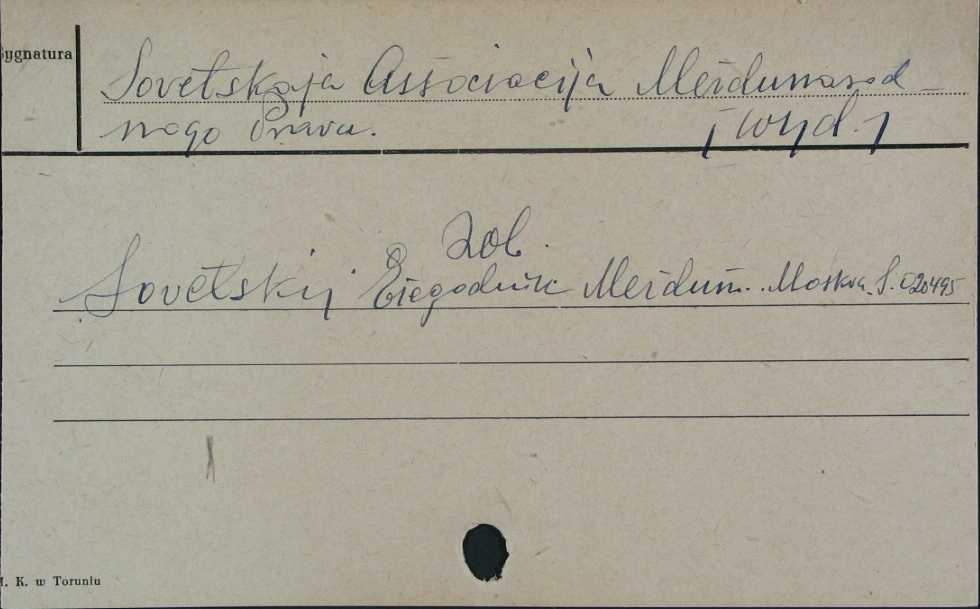 Sygnatura
Sovetskaja Associacija Meżdunarod-
nogo Prava. [wyd.]
zob.
Sovetskij Eżegodnik Meżdun. Moskva. S.020495
M. K. w Toruniu